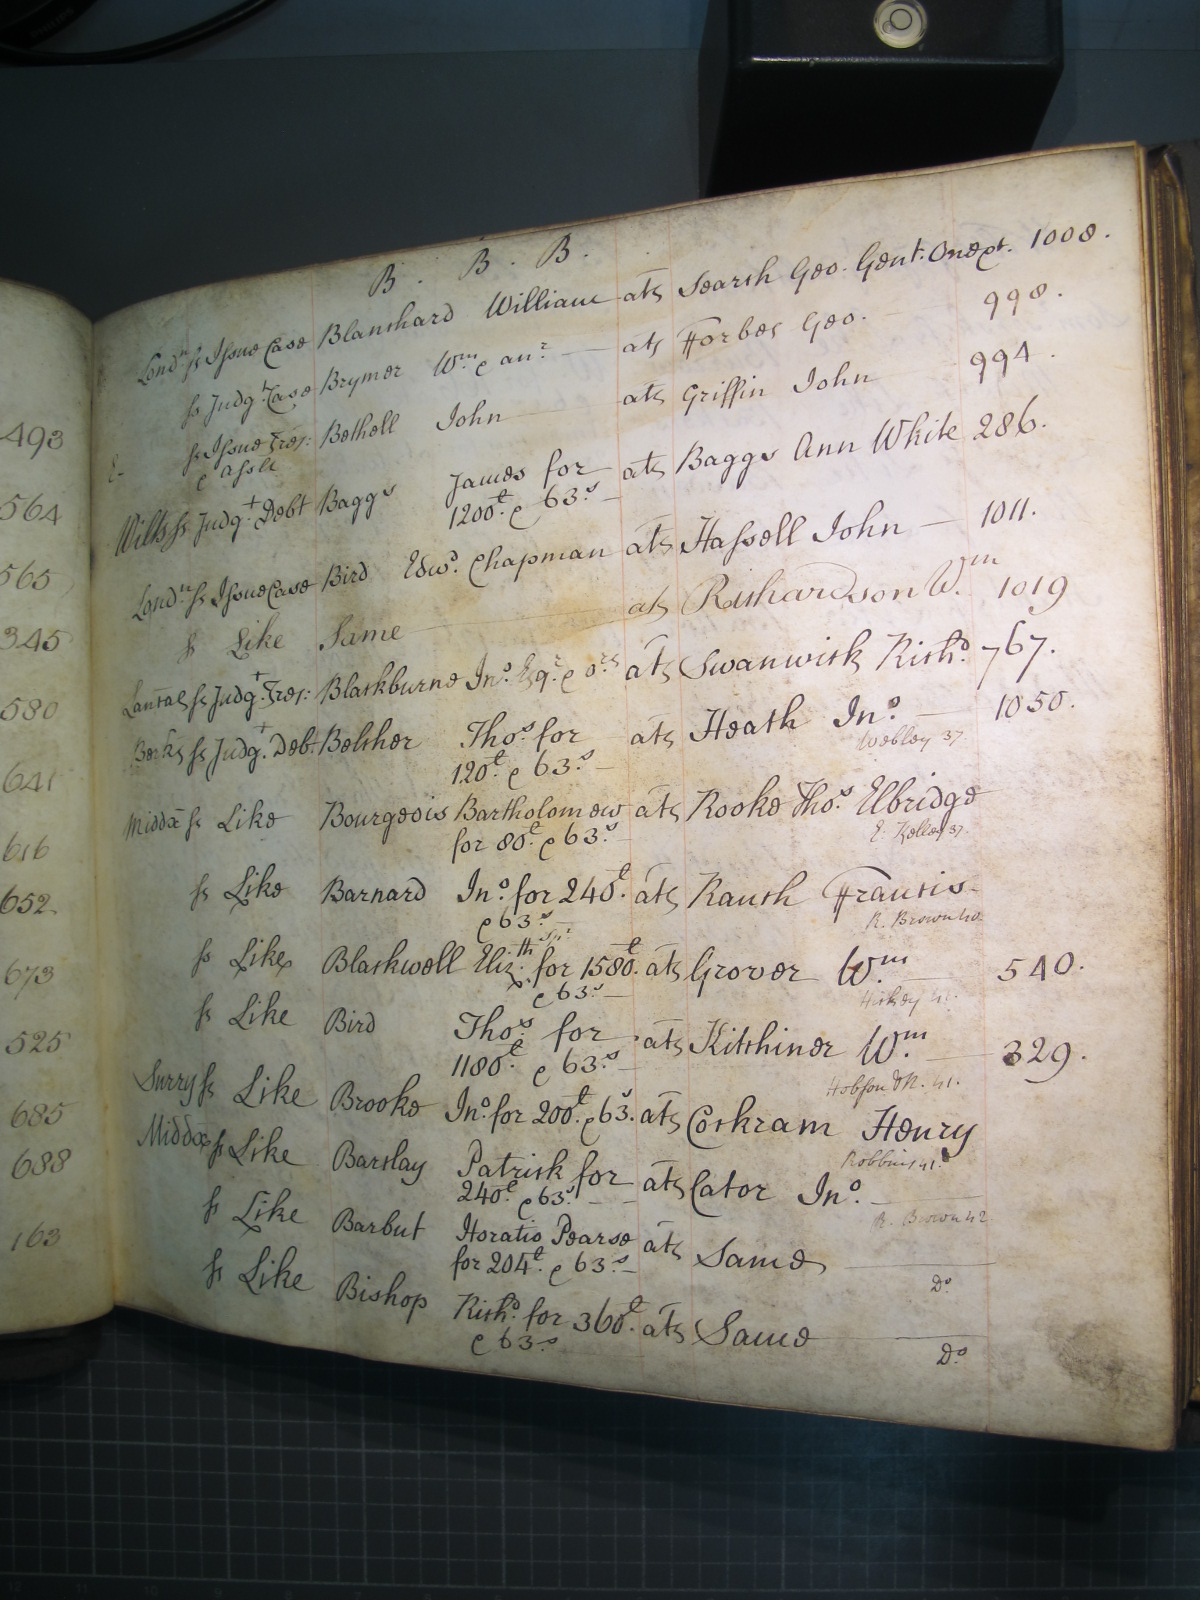 B. B. B.
Lond.n ss Issue Case Blanchard William ats Search Geo. Gent. One &c. 1008.
ss Judg.t Case Brymer Wm. & an.r ats Forbes Geo. 998.
ss Issue Tres: Bethell John ats Griffin John 994.
& Asslt
Wilts ss Judg.t Debt Baggs James for ats Baggs Ann White 286.
1200£. & 63.s
Lond.n ss Issue Case Bird Edw.d Chapman ats Hassell John 1011.
ss Like Same ats Richardson Wm. 1019
Lancas ss Judg.t Tres: Blackburne Jno. Esq.r & ors ats Swanwick Rich.d 767.
Berks ss Judg.t Debt Belcher Tho.s for ats Heath Jno. 1050.
120£. & 63.s Webley 37
Middx ss Like Bourgeois Bartholomew ats Rooke Tho.s Elbridge
for 80£. & 63.s E. Kelley 37.
ss Like Barnard Jno. for 240£. ats Rauch Francis
& 63.s R. Brown 40
ss Like Blackwell Eliz.th Spr for 1580£. ats Grover Wm. 540.
& 63.s Hickey 41.
ss Like Bird Tho.s for ats Kitchiner Wm. 329.
1180£. & 63.s Hobson 41.
Surry ss Like Brooke Jno. for 200£. & 63s. ats Corkram Henry
Robbins 41.
Middx ss Like Barclay Patrick for ats Cator Jno.
240£. & 63.s R. Brown 42
ss Like Barbut Horatio Pearse ats Same
for 204£. & 63.s Do.
ss Like Bishop Rich.d for 360£. ats Same
& 63.s Do.
493
564
565
345
580
641
616
652
673
525
685
688
163